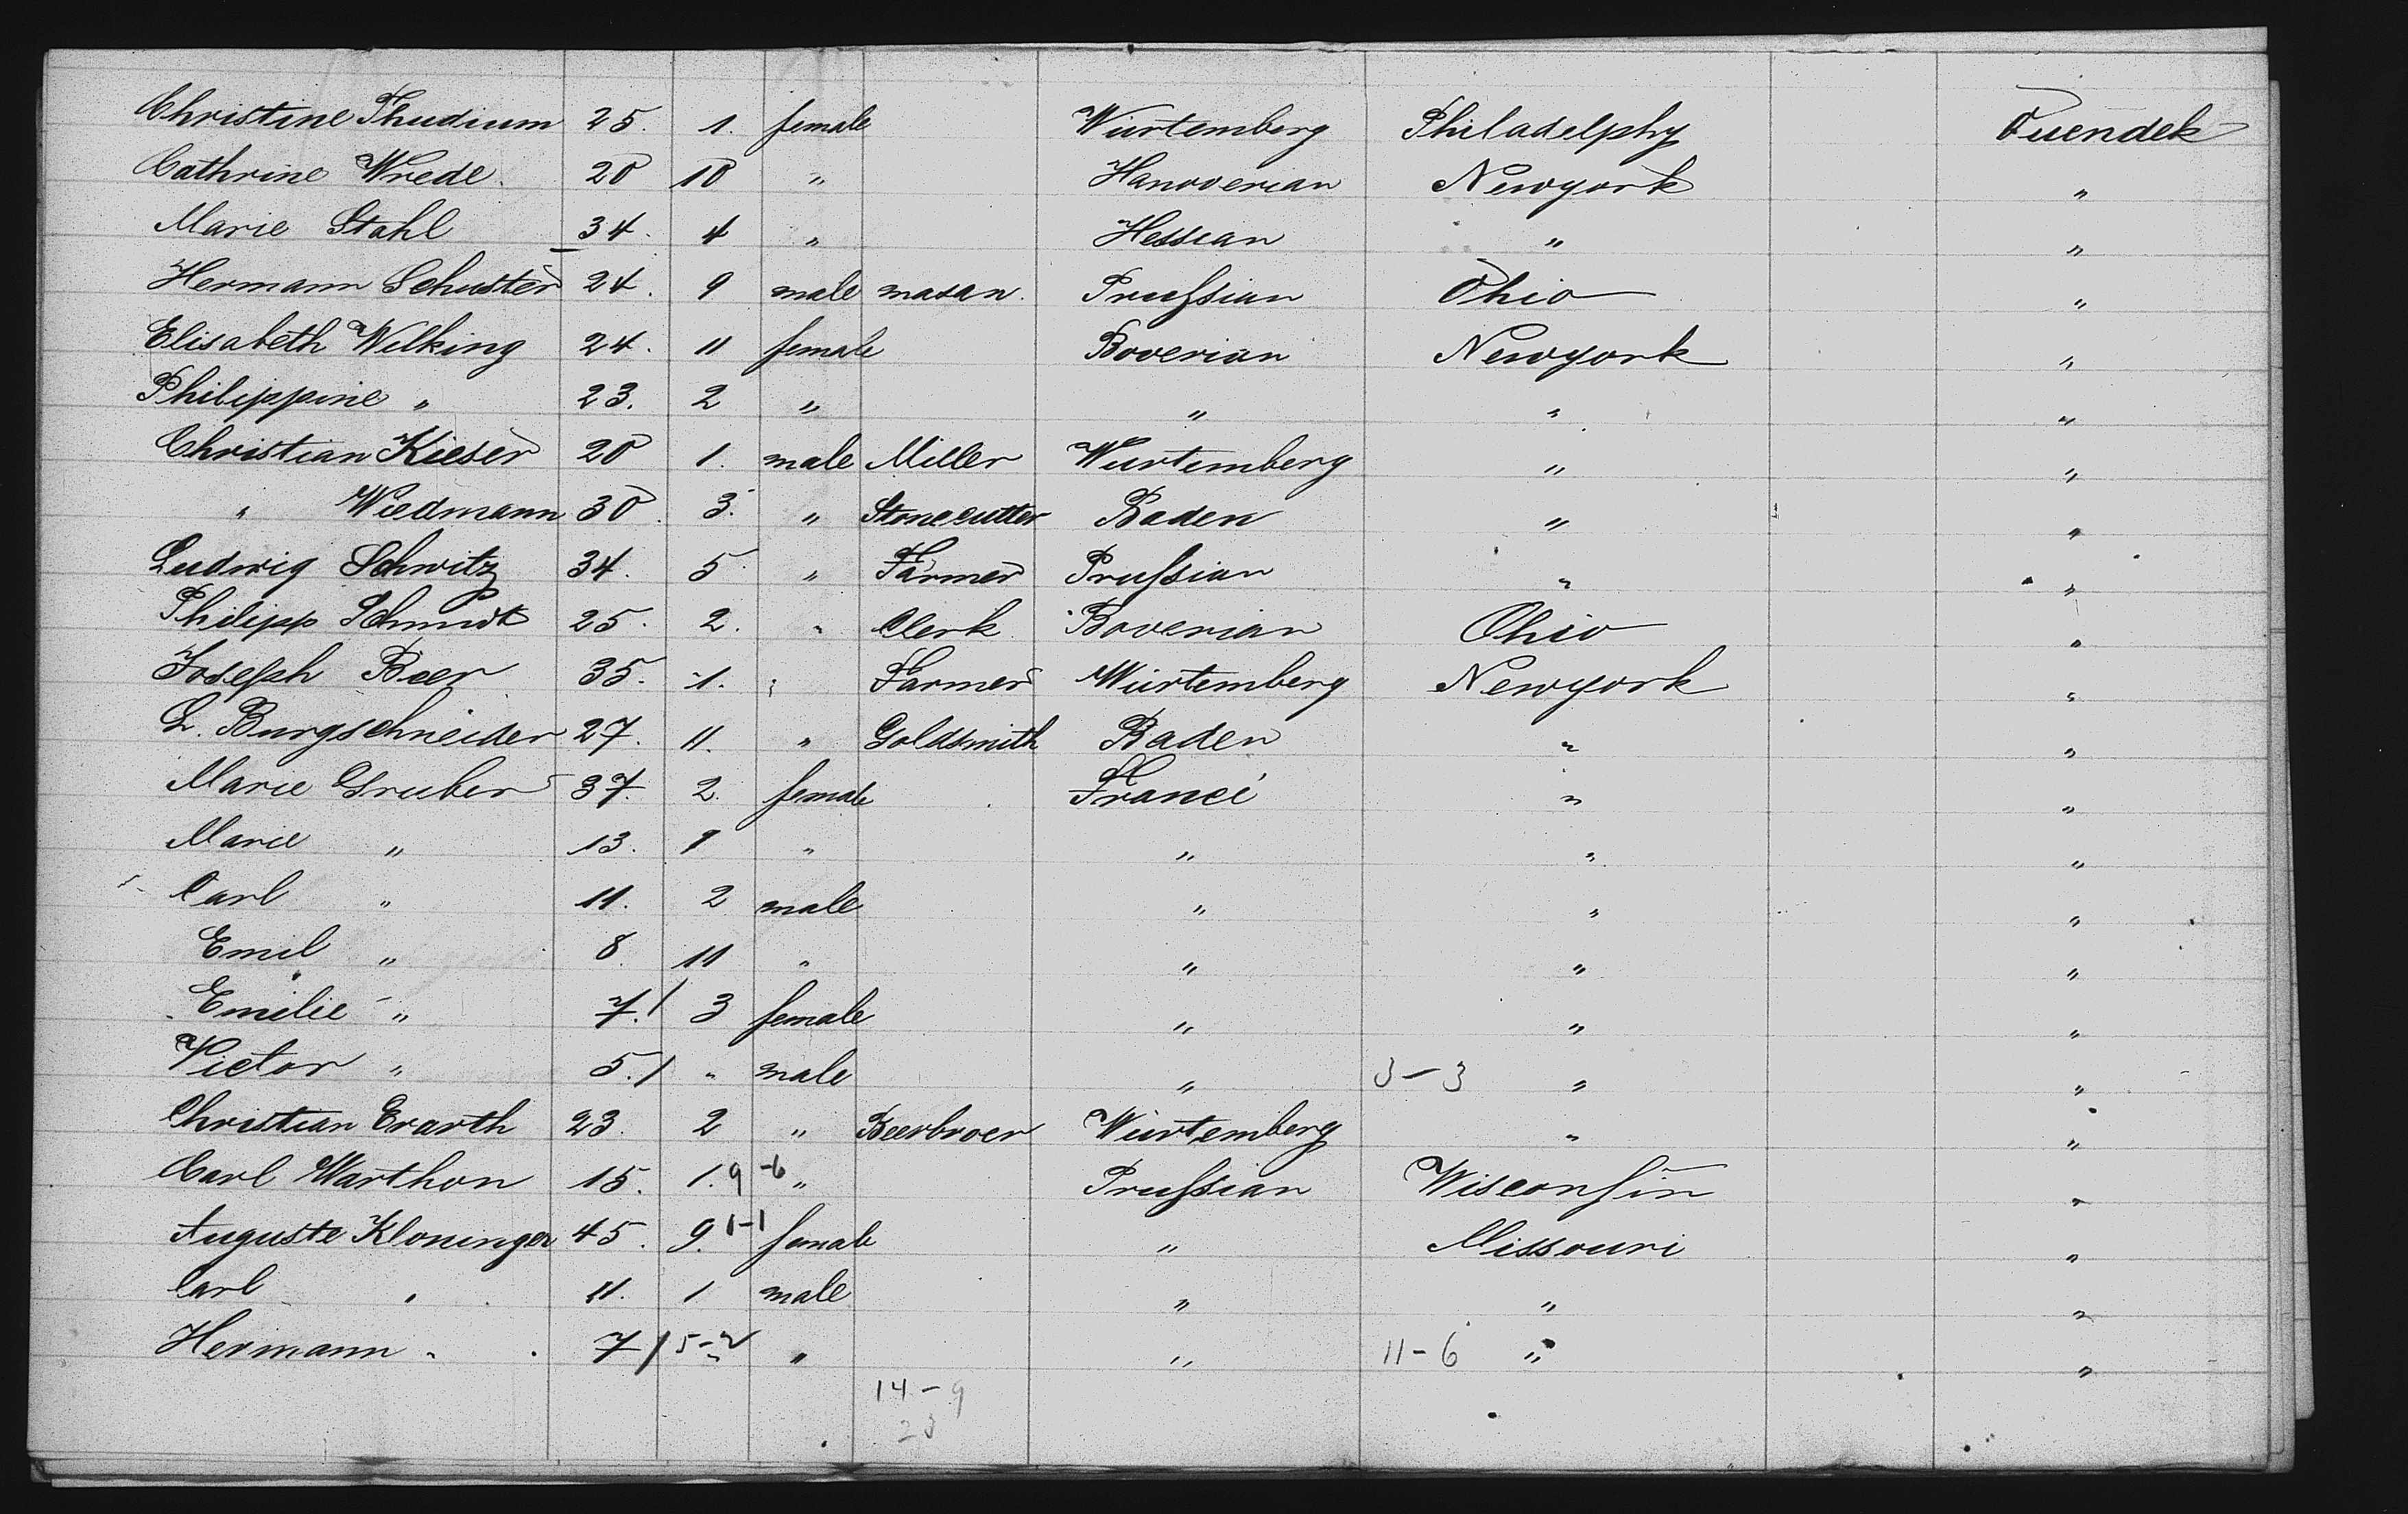 Christine Thudium 25. 1. female Würtemberg Philadelphy Tuendek
Cathrine Wrede. 20 10 " Hanoverian Newyork "
Marie Stahl 34. 4 " Hessean " "
Hermann Schuster 24. 9 male masan. Prussian Ohio "
Elisabeth Welking 24. 11 female Boverian Newyork "
Philippine " 23. 2 " " " "
Christian Kieser 20 1. male Miller Wurtemberg " "
" Wiedmann 30. 3. " Stonecutter Baden " "
Ludwig Schwitz 34. 5. " Farmer Prussian " "
Philipp Schmidt 25. 2. " Clerk Boverian Ohio "
Joseph Beer 35. 1. " Farmer Würtemberg Newyork "
L. Burgschneider 27. 11. " Goldsmith Baden " "
Marie Gruber 37. 2. female France " "
Marie " 13. 9 " " " "
Carl " 11. 2 male " " "
Emil " 8. 11 " " " "
Emilie " 7. / 3 female " " "
Victor " 5. / " male " 3-3 " "
Christian Erarth 23. 2 " Beerbroer Würtemberg " "
Carl Warthon 15. 1. 9-6 " Prussian Wisconsin "
Auguste Kloninger 45. 9. 1-1 female " Missouri "
Carl " 11. 1 male " " "
Hermann " 7 / 5-2 " " " 11-6 " "
14-9
23